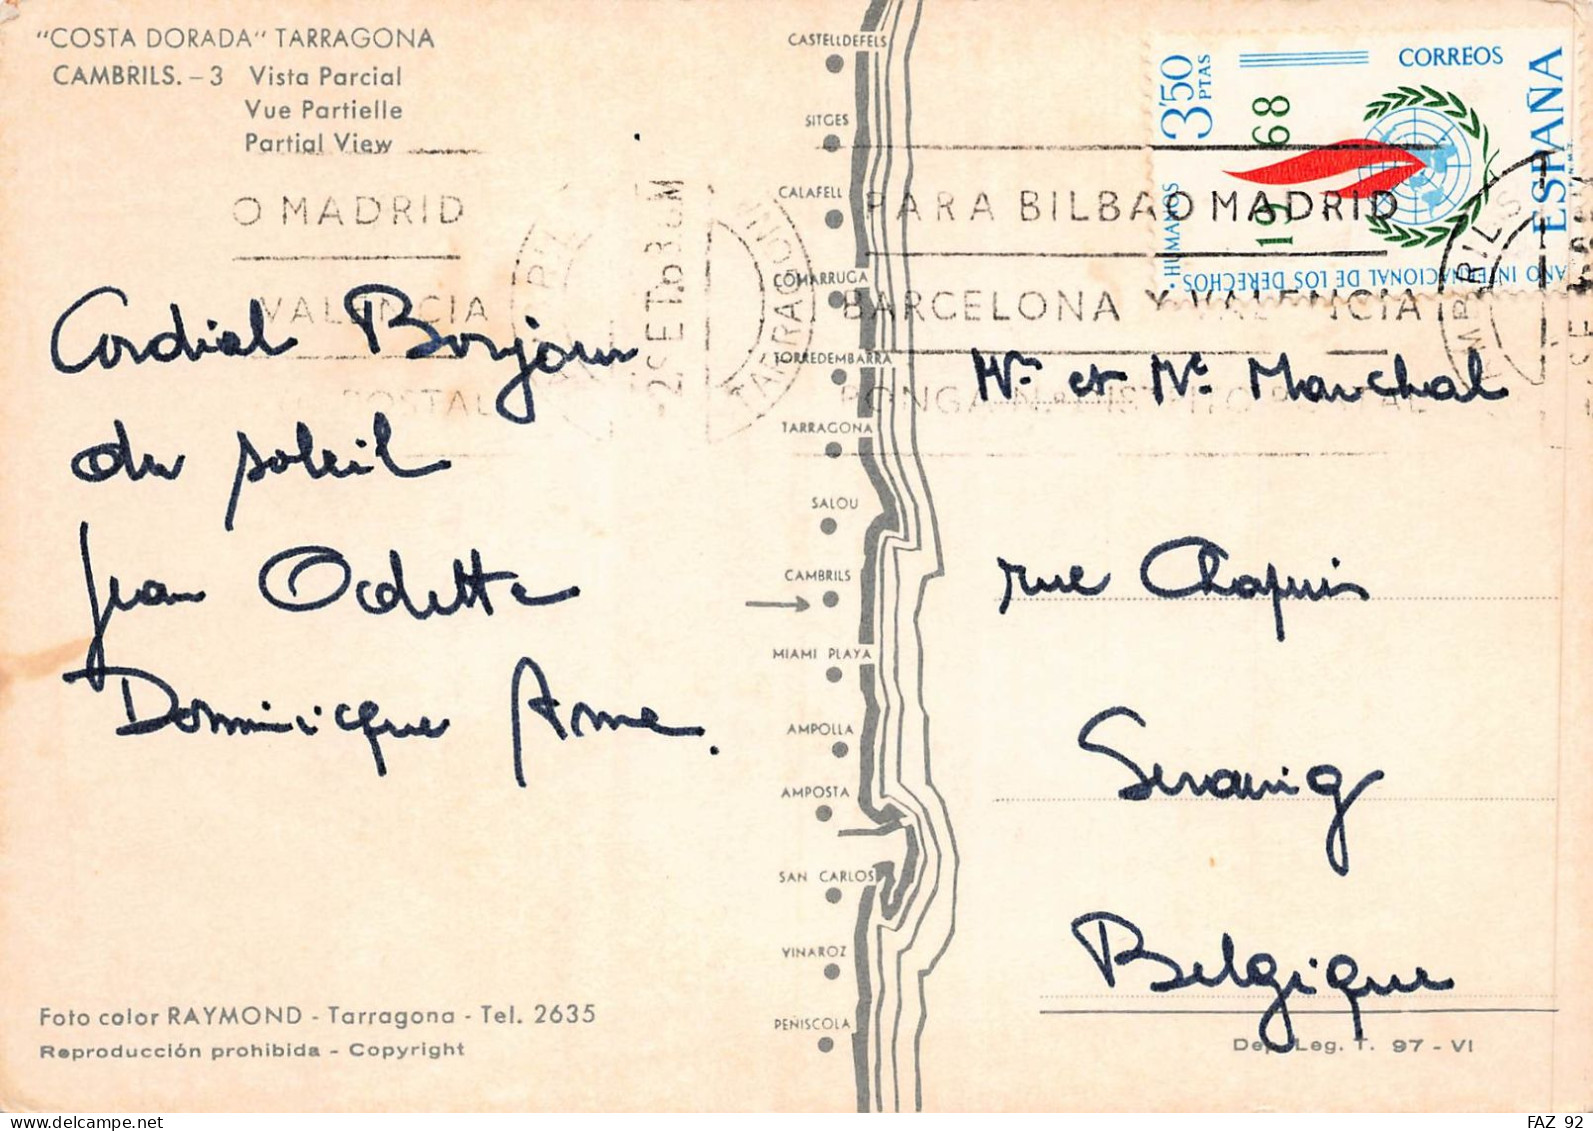 "COSTA DORADA" TARRAGONA
CAMBRILS. - 3 Vista Parcial
Vue Partielle
Partial View
O MADRID
VALENCIA
POSTAL
TARRAGONA
Cordial Bonjour
du soleil
Jean Odette
Dominicque Anne.
Foto color RAYMOND - Tarragona - Tel. 2635
Reproducción prohibida - Copyright
CASTELLDEFELS
SITGES
CALAFELL
COMARRUGA
TORREDEMBARRA
TARRAGONA
SALOU
CAMBRILS
MIAMI PLAYA
AMPOLLA
AMPOSTA
SAN CARLOS
VINAROZ
PEÑISCOLA
3'50 PTAS
CORREOS
ESPAÑA
1968
AÑO INTERNACIONAL DE LOS DERECHOS HUMANOS
PARA BILBAO MADRID
BARCELONA Y VALENCIA
PONGA Nº DISTRITO POSTAL
Mr et Me Marchal
rue Chapuis
Seraing
Belgique
Dep. Leg. T. 97 - VI
FAZ 92